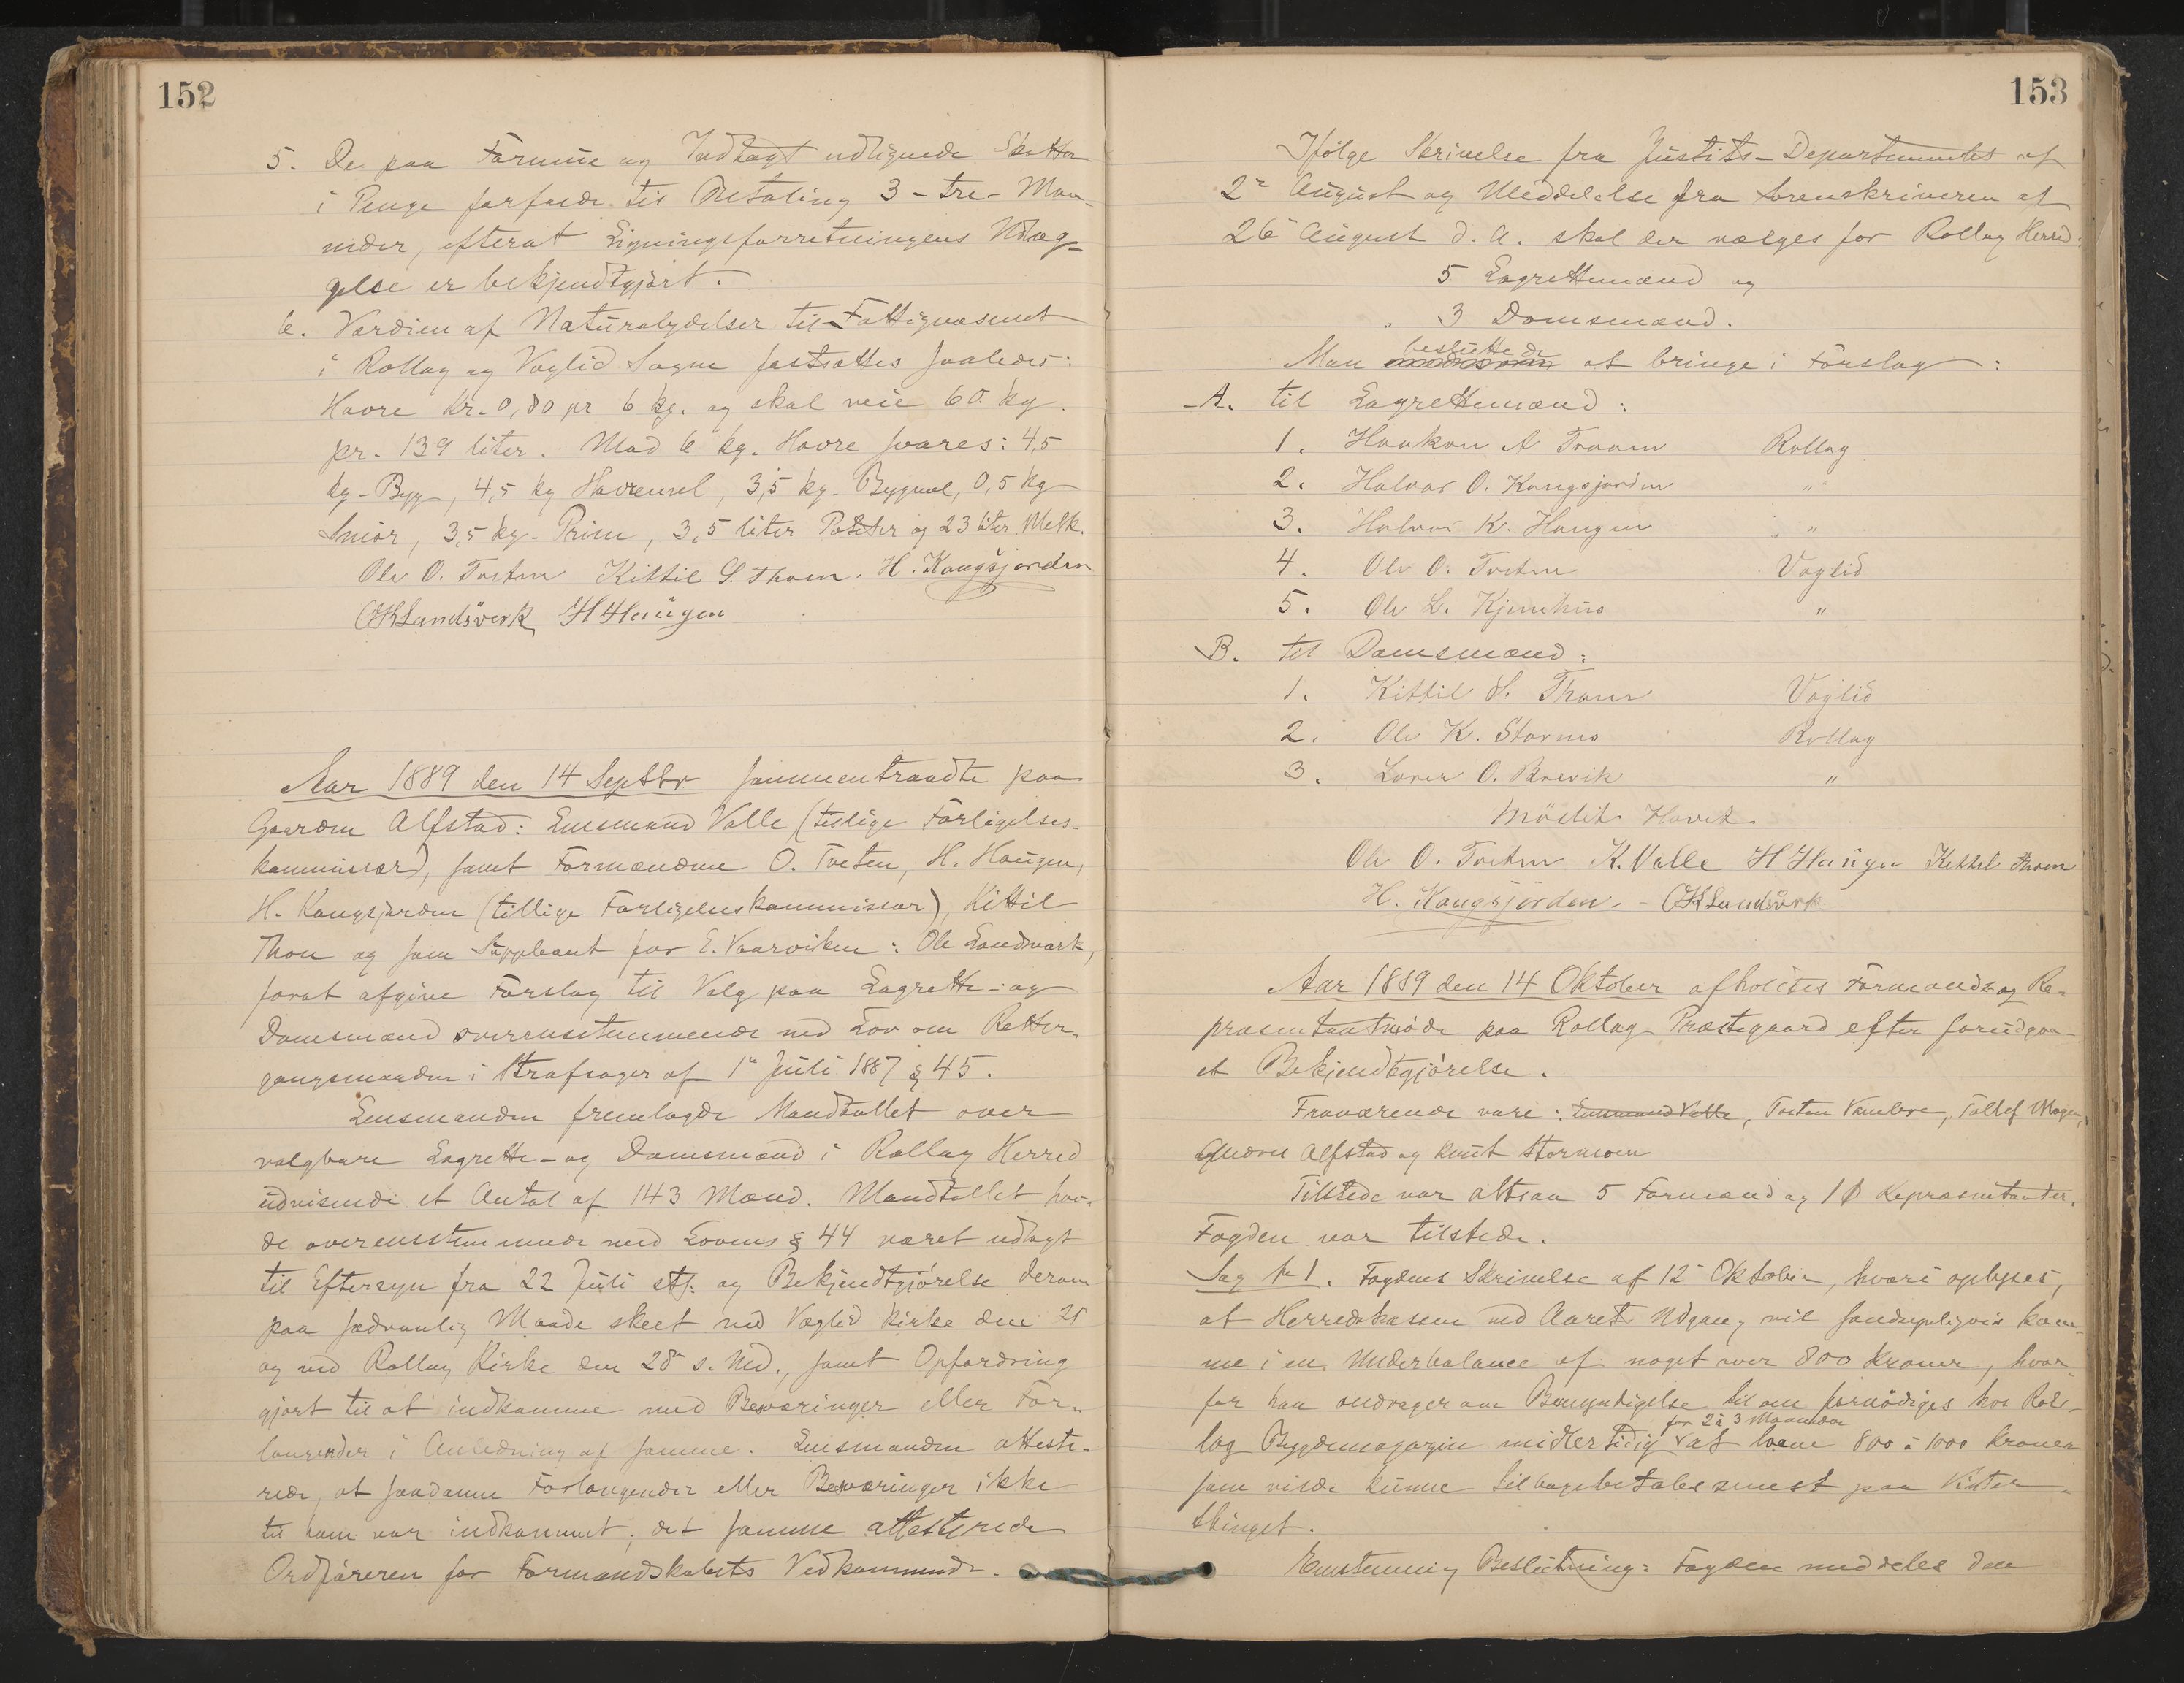 152
5. De paa Formue og Indtægt udlignede Skatter
i Penge forfalde til Betaling 3 - tre - Maa-
neder, efterat Ligningsforretningens Udlæg-
gelse er bekjendtgjort.
6. Værdien af Naturalydelser til Fattigvæsenet
i Rollag og Væglid Sogne fastsættes saaledes:
Havre Kr. 0,80 pr 6 kg. og skal veie 60 kg.
pr. 139 liter. Mod 6 kg. Havre svares: 4,5
kg - Byg, 4,5 kg Havremel, 3,5 kg. Bygmel, 0,5 kg
Smör, 3,5 kg. Prim, 3,5 liter Poteter og 23 liter Melk.
Ole O. Tveten Kittil S. Thon. H. Kongsjorden
OKLandsverk H Haugen
Aar 1889 den 14 Septbr sammentraadte paa
Gaarden Alfstad: Lensmand Valle (tillige Forligelses-
kommissær), samt Formændene O. Tveten, H. Haugen,
H. Kongsjorden (tillige Forligelseskommissær), Kittil
Thon og som Suppleant for E. Vaarviken: Ole Landsværk,
forat afgive Forslag til Valg paa Lagrette- og
Domsmænd overensstemmende med Lov om Retter-
gangsmaaden i Strafsager af 1ste Juli 1887 § 45.
Lensmanden fremlagde Mandtallet over
valgbare Lagrette- og Domsmænd i Rollag Herred
udvisende et Antal af 143 Mænd. Mandtallet hav-
de overensstemmende med Lovens § 44 været udlagt
til Eftersyn fra 22 Juli og Bekjendtgjörelse derom
paa sædvanlig Maade skeet ved Væglid Kirke den 21
og ved Rollag Kirke den 28de s. Md., samt Opfordring
gjort til at indkomme med Besværinger eller For-
langender i Anledning af samme. Lensmanden atteste-
rede, at saadanne Forlangender eller Besværinger ikke
til ham var indkommet, det samme attesterede
Ordföreren for Formandskabets Vedkommende.
153
Ifölge Skrivelse fra Justits-Departementet af
2den August og Meddelelse fra Sorenskriveren af
26de August d. A. skal der vælges for Rollag Herred:
5 Lagrettemænd og
3 Domsmænd.
Man besluttede at bringe i Forslag:
A. til Lagrettemænd:
1. Haakon A Traaen Rollag
2. Halvor O. Kongsjorden "
3. Halvor K. Haugen "
4. Ole O. Tveten Væglid
5. Ole L. Kjemhus "
B. til Domsmænd:
1. Kittil S. Thon Væglid
2. Ole K. Stormo Rollag
3. O. Brevik "
Mödet Hævet.
Ole O. Tveten K. Valle H Haugen Kittil Thon
H. Kongsjorden. - OKLandsverk
Aar 1889 den 14 Oktober afholdtes Formands- og Re-
præsentantmöde paa Rollag Præstegaard efter forudgaa-
et Bekjendtgjörelse.
Fraværende vare: Lensmand Valle, Torsten Vamlere, Tollef Mogen,
Alfstad og Knut Stormoen
Tilstede var altsaa 5 Formænd og 10 Repræsentanter.
Fogden var tilstede.
Sag No 1. Fogdens Skrivelse af 12te Oktober, hvori oplyses,
at Herredskassen ved Aarets Udgang vil sandsynligvis kom-
me i en Underbalance af noget over 800 Kroner, hvor-
for han andrager om Bemyndigelse til om fornödiges hos Rol-
lag Bygdemagazin midlertidig for 2 à 3 Maaneder at laane 800 à 1000 Kroner
som vilde kunne tilbagebetales senest paa Vinter-
thinget.
Enstemmig Beslutning: Fogden meddeles den